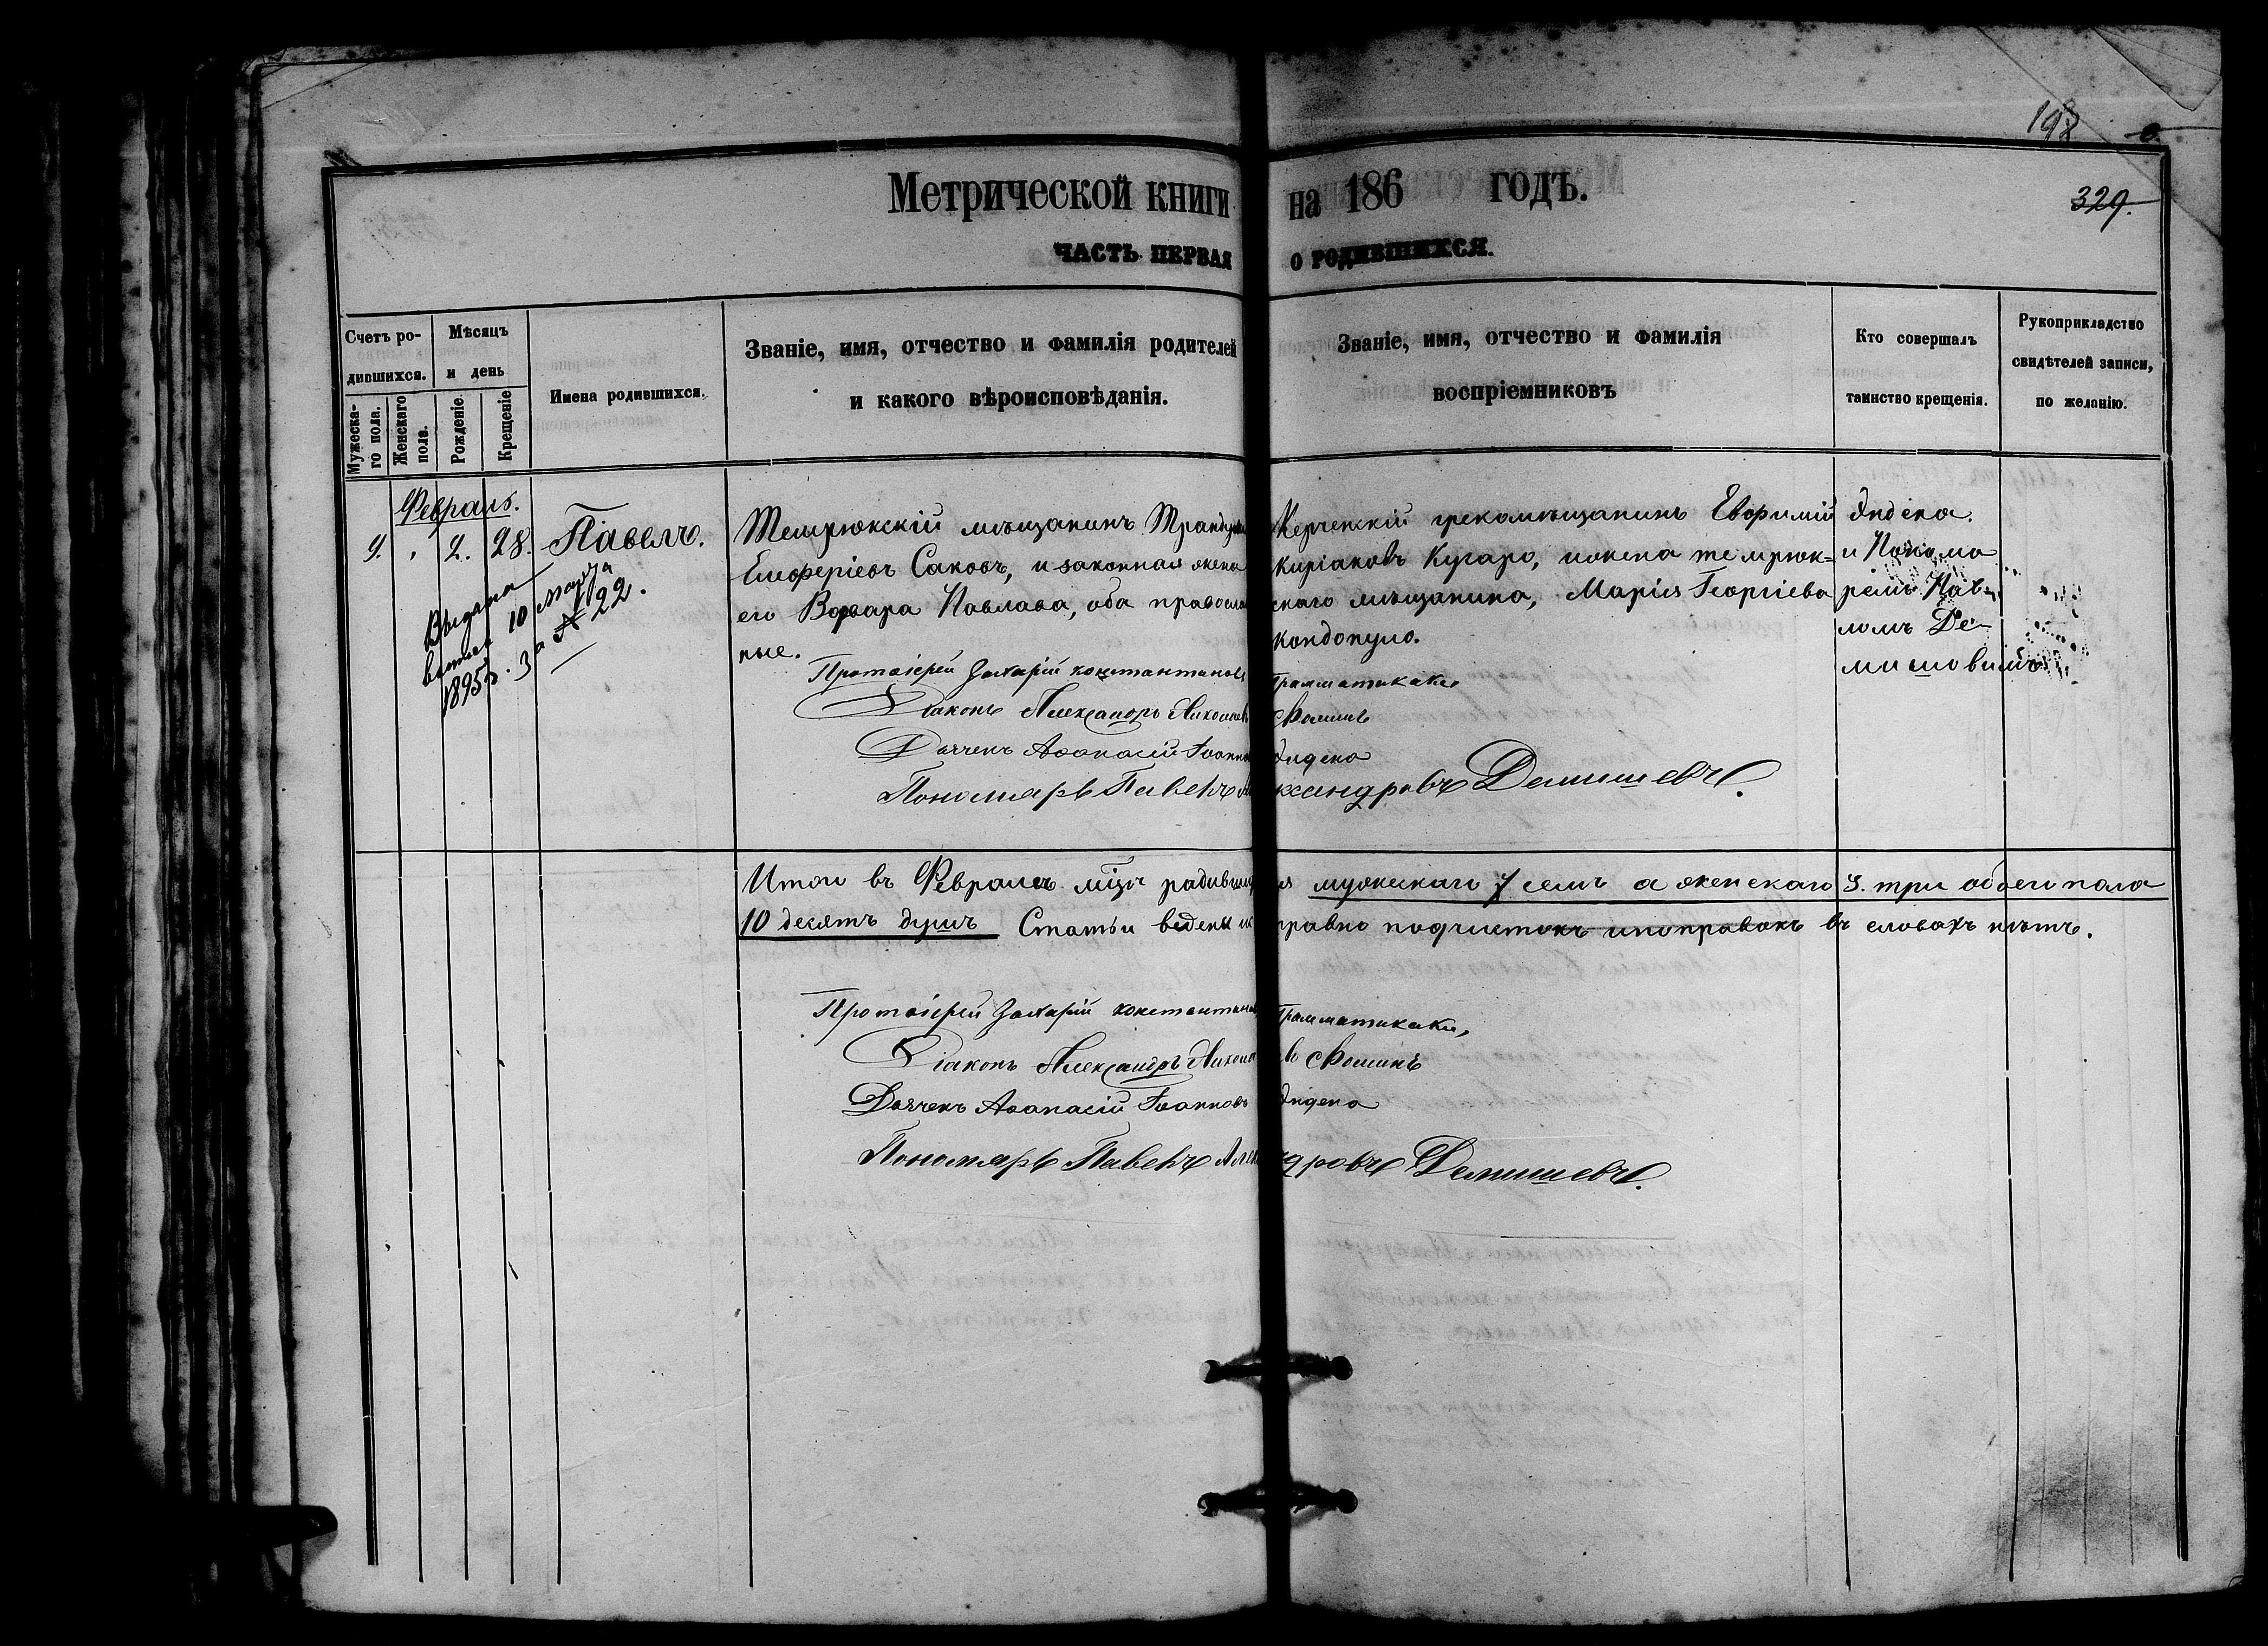 198
329.
Метрической книги на 186 годъ.
ЧАСТЬ ПЕРВАЯ о РОДИВШИХСЯ.
Счетъ ро-
дившихся.
Мужеска-
го пола.
Женскаго
пола.
Мѣсяцъ
и день
Рожденіе.
Крещеніе
Имена родившихся.
Званіе, имя, отчество и фамилія родителей
и какого вѣроисповѣданія.
Званіе, имя, отчество и фамилія
воспріемниковъ
Кто совершалъ
таинство крещенія.
Рукоприкладство
свидѣтелей записи,
по желанію.
Февраль.
9. " 2. 28. Павелъ.
Выдана
10 марта
1895 г. За № 22.
Темрюкскій мѣщанинъ
Елеферіевъ Саковъ, и законная жена
его Варвара Павлова, оба православ
ные.
Керченскій грекомѣщанинъ Евфимій
Киріаковъ Кугаро, и жена темрюк-
скаго мѣщанина, Марія Георгіева
Кондопуло.
Дидека.
и Понома
ремъ Пав-
ломъ Де-
мишовимъ
Протоіерей Захарій Константиновъ Грамматикаки
Діаконъ Александръ Николаевъ Фоминъ
Дьячекъ Аѳанасій Іоанновъ Дидека
Пономарь Павелъ Александровъ Демишевъ.
Итого въ Февралѣ мѣцѣ родившихся мужескаго 7 семь а женскаго 3. три обоего пола
10 десять душъ Статьи ведены исправно подчистокъ и поправокъ въ словахъ нѣтъ.
Протоіерей Захарій Константиновъ Грамматикаки,
Діаконъ Александръ Николаевъ Фоминъ
Дьячекъ Аѳанасій Іоанновъ Дидека
Пономарь Павелъ Александровъ Демишевъ.